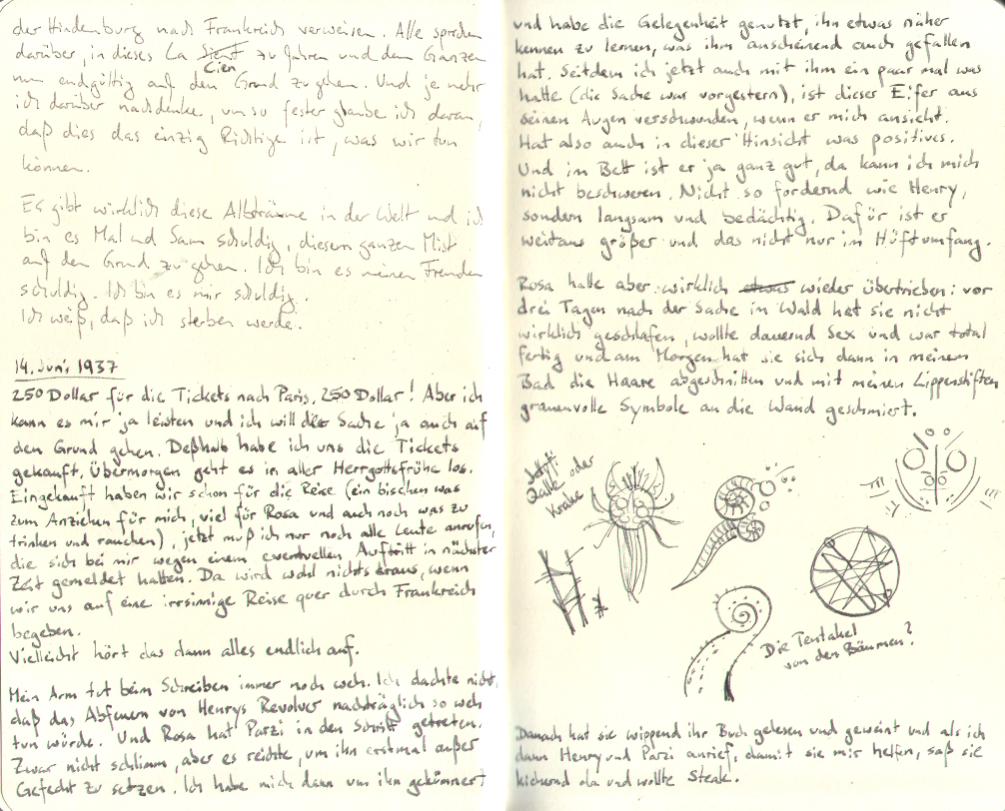 der Hindenburg nach Frankreich verweisen. Alle sprechen
darüber, in dieses La Cien zu fahren und dem Ganzen
nun endgültig auf den Grund zu gehen. Und je mehr
ich darüber nachdenke, um so fester glaube ich daran,
daß dies das einzig Richtige ist, was wir tun
können.
Es gibt wirklich diese Albträume in der Welt und ich
bin es Mal und Sam schuldig, diesem ganzen Mist
auf den Grund zu gehen. Ich bin es meinen Freunden
schuldig. Ich bin es mir schuldig.
Ich weiß, daß ich sterben werde.
14. Juni 1937
250 Dollar für die Tickets nach Paris. 250 Dollar! Aber ich
kann es mir ja leisten und ich will der Sache ja auch auf
den Grund gehen. Deßhalb habe ich uns die Tickets
gekauft. Übermorgen geht es in aller Herrgottsfrühe los.
Eingekauft haben wir schon für die Reise (ein bischen was
zum Anziehen für mich, viel für Rosa und auch noch was zu
trinken und rauchen), jetzt muß ich nur noch alle Leute anrufen,
die sich bei mir wegen einem eventuellen Auftritt in nächster
Zeit gemeldet hatten. Da wird wohl nichts draus, wenn
wir uns auf eine irrsinnige Reise quer durch Frankreich
begeben.
Vielleicht hört das dann alles endlich auf.
Mein Arm tut beim Schreiben immer noch weh. Ich dachte nicht,
daß das Abfeuern von Henrys Revolver nachträglich so weh
tun würde. Und Rosa hat Parzi in den Schritt getreten.
Zwar nicht schlimm, aber es reichte, um ihn erstmal außer
Gefecht zu setzen. Ich habe mich dann um ihn gekümmert
und habe die Gelegenheit genutzt, ihn etwas näher
kennen zu lernen, was ihm anscheinend auch gefallen
hat. Seitdem ich jetzt auch mit ihm ein paar mal was
hatte (die Sache war vorgestern), ist dieser Eifer aus
seinen Augen verschwunden, wenn er mich ansieht.
Hat also auch in dieser Hinsicht was positives.
Und im Bett ist er ja ganz gut, da kann ich mich
nicht beschweren. Nicht so fordernd wie Henry,
sondern langsam und bedächtig. Dafür ist er
weitaus größer und das nicht nur im Hüftumfang.
Rosa hatte aber wirklich etwas wieder übertrieben: vor
drei Tagen nach der Sache im Wald hat sie nicht
wirklich geschlafen, wollte dauernd Sex und war total
fertig und am Morgen hat sie sich dann in meinem
Bad die Haare abgeschnitten und mit meinen Lippenstiften
grauenvolle Symbole an die Wand geschmiert.
Qualle oder
Krake
Die Tentakel
von den Bäumen?
Danach hat sie wippend ihr Buch gelesen und geweint und als ich
dann Henry und Parzi anrief, damit sie mir helfen, saß sie
kichernd da und wollte Steak.